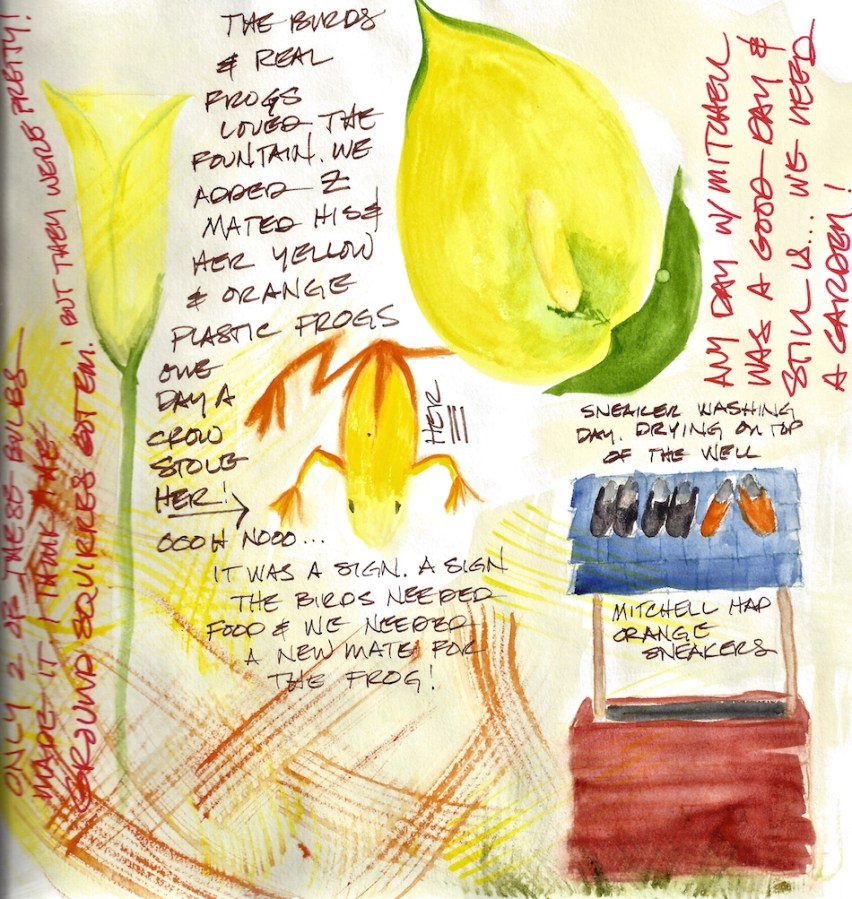 ONLY 2 OF THESE BULBS
MADE IT I THINK THE
GROUND SQUIRRES GOT EM. BUT THEY WERE PRETTY!
THE BIRDS
& REAL
FROGS
LOVED THE
FOUNTAIN. WE
ADDED 2
MATED HIS &
HER YELLOW
& ORANGE
PLASTIC FROGS
ONE
DAY A
CROW
STOLE
HER!
HER
OOOH NOOO...
IT WAS A SIGN. A SIGN
THE BIRDS NEEDED
FOOD & WE NEEDED
A NEW MATE FOR
THE FROG!
ANY DAY W/ MITCHELL
WAS A GOOD DAY &
STILL IS... WE NEED
A GARDEN!
SNEAKER WASHING
DAY. DRYING ON TOP
OF THE WELL
MITCHELL HAD
ORANGE
SNEAKERS